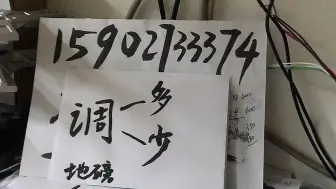 15902733374
多
调
少
地磅